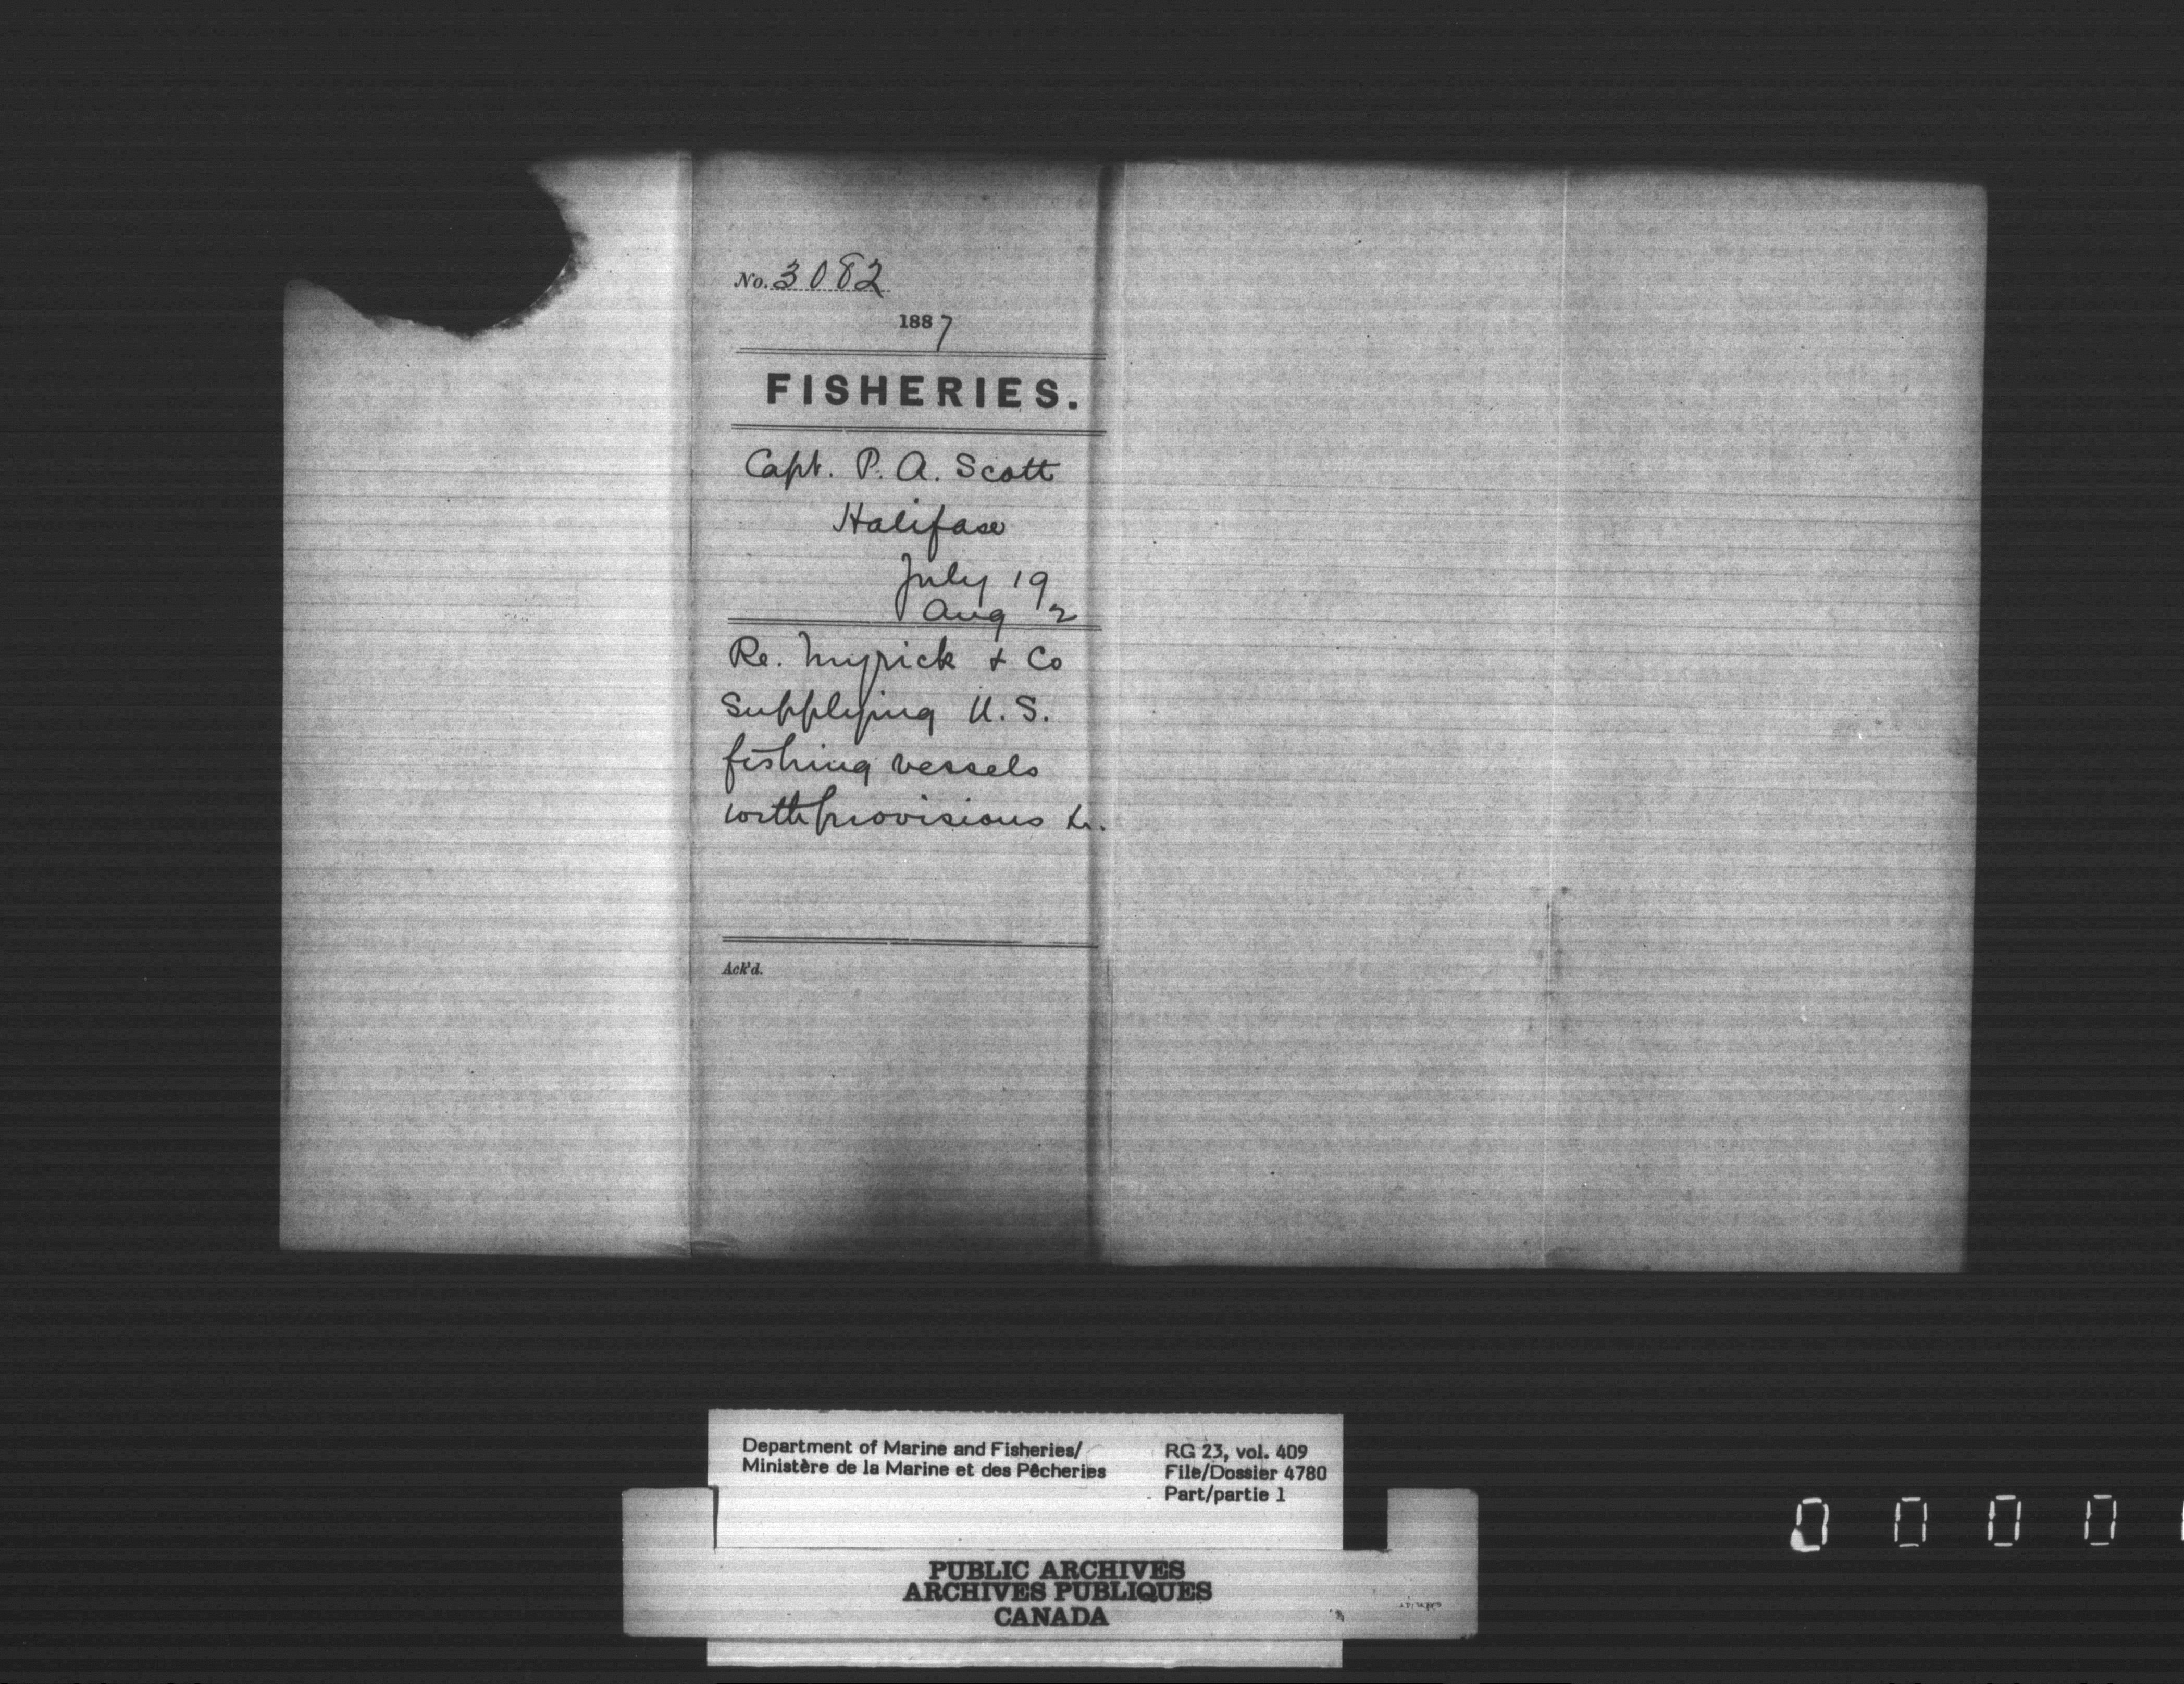 No. 3082
1887
FISHERIES.
Capt. P. A. Scott
Halifax
July 19
Aug 2
Re. Myrick & Co
Supplying U. S.
fishing vessels
with provisions &c.
Ack'd.
Department of Marine and Fisheries/
Ministère de la Marine et des Pêcheries
RG 23, vol. 409
File/Dossier 4780
Part/partie 1
PUBLIC ARCHIVES
ARCHIVES PUBLIQUES
CANADA
0 0 0 0